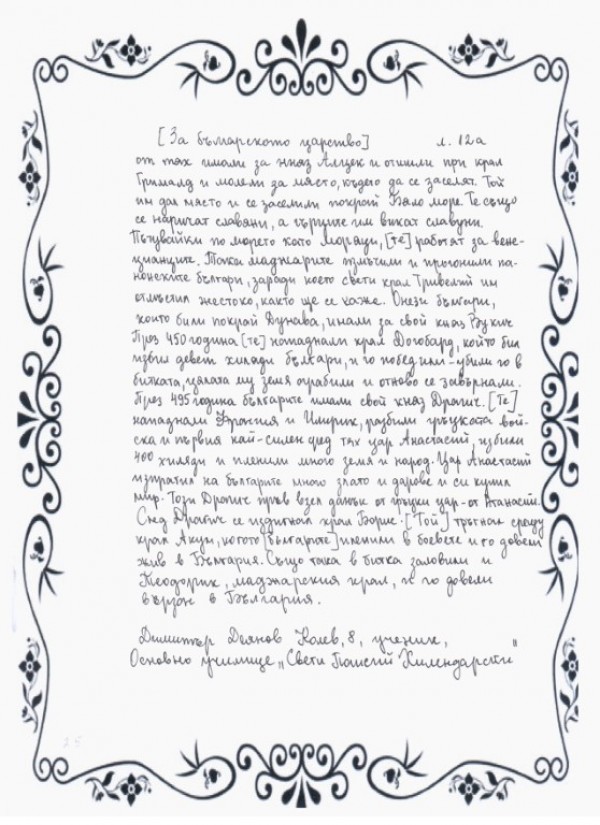 [За българското царство] л. 12а
от тях имали за княз Алцек и отишли при крал
Грималд и молели за място, където да се заселят. Той
им дал място и се заселили покрай Бяло море. Те също
се наричат славяни, а гърците им викат славуни.
Пътувайки по морето като моряци, [те] работят за вене-
цианците. Така маджарите измъчили и прогонили па-
нонските българи, заради което свети крал Тривелий им
отмъстил жестоко, както ще се каже. Онези българи,
които били покрай Дунава, имали за свой княз Вукич
През 450 година [те] нападнали крал Догобард, който бил
избил девет хиляди българи, и го победили - убили го в
битката, цялата му земя ограбили и отново се завърнали.
През 495 година българите имали свой княз Драгич. [Те]
нападнали Тракия и Илирик, разбили гръцката вой-
ска и първия най-силен сред тях цар Анастасий, избили
400 хиляди и пленили много земя и народ. Цар Анастасий
изпратил на българите много злато и дарове и си купил
мир. Този Драгич пръв взел данък от гръцки цар - от Атанасий.
След Драгич се издигнал крал Борис. [Той] тръгнал срещу
крал Акум, когото [българите] пленили в боевете и го довели
жив в България. Също така в битка заловили и
Теодорик, маджарския крал, и го довели
вързан в България.
Димитър Деянов Колев, 8, ученик,
Основно училище „Свети Паисий Хилендарски"
25